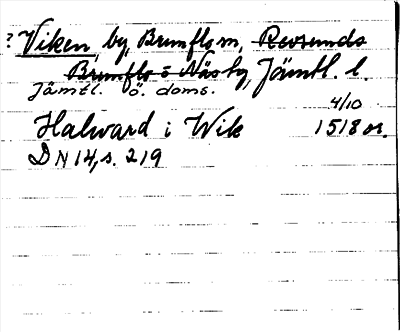 ? Viken, by, Brunflo sn, Revsunds
Brunflo o Näsby, Jämtl. l.
Jämtl. ö. doms.
4/10
Halward i Wik 1518 or.
DN 14, s. 219